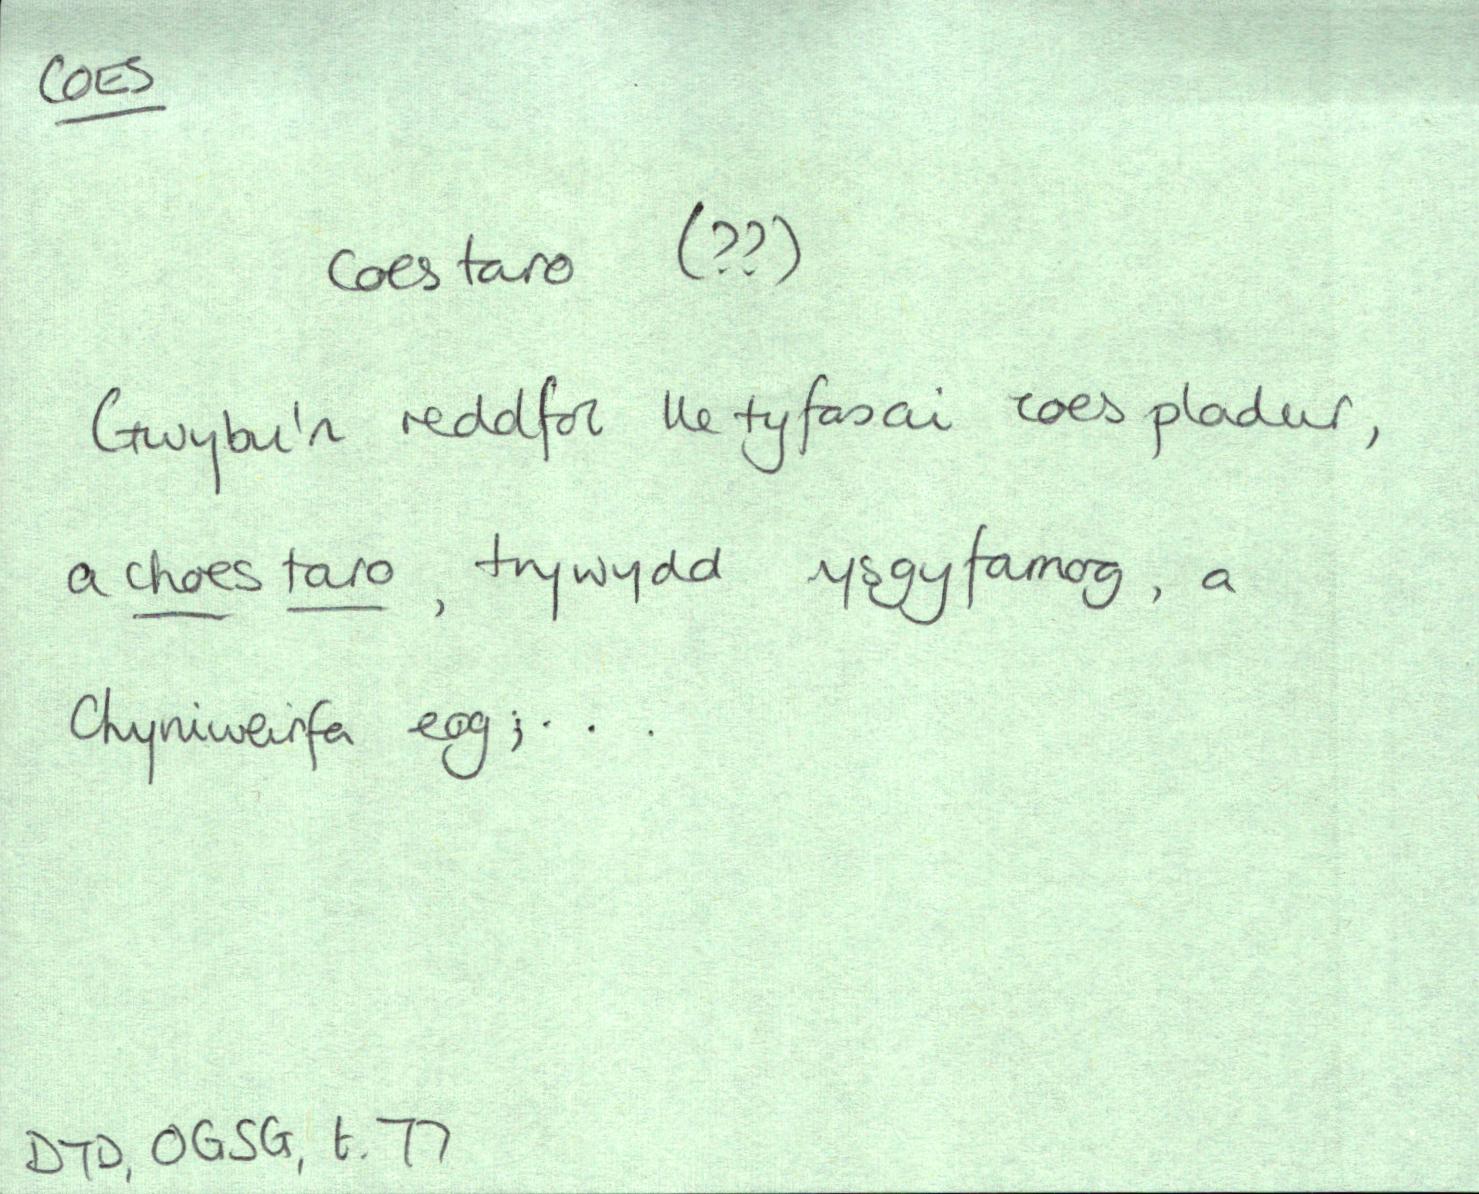 COES
coes taro (??)
Gwybu'n reddfol lle tyfasai coes pladur,
a choes taro, trywydd ysgyfarnog, a
Chyniweirfa eog; . . .
DTD, OGSG, t. 77